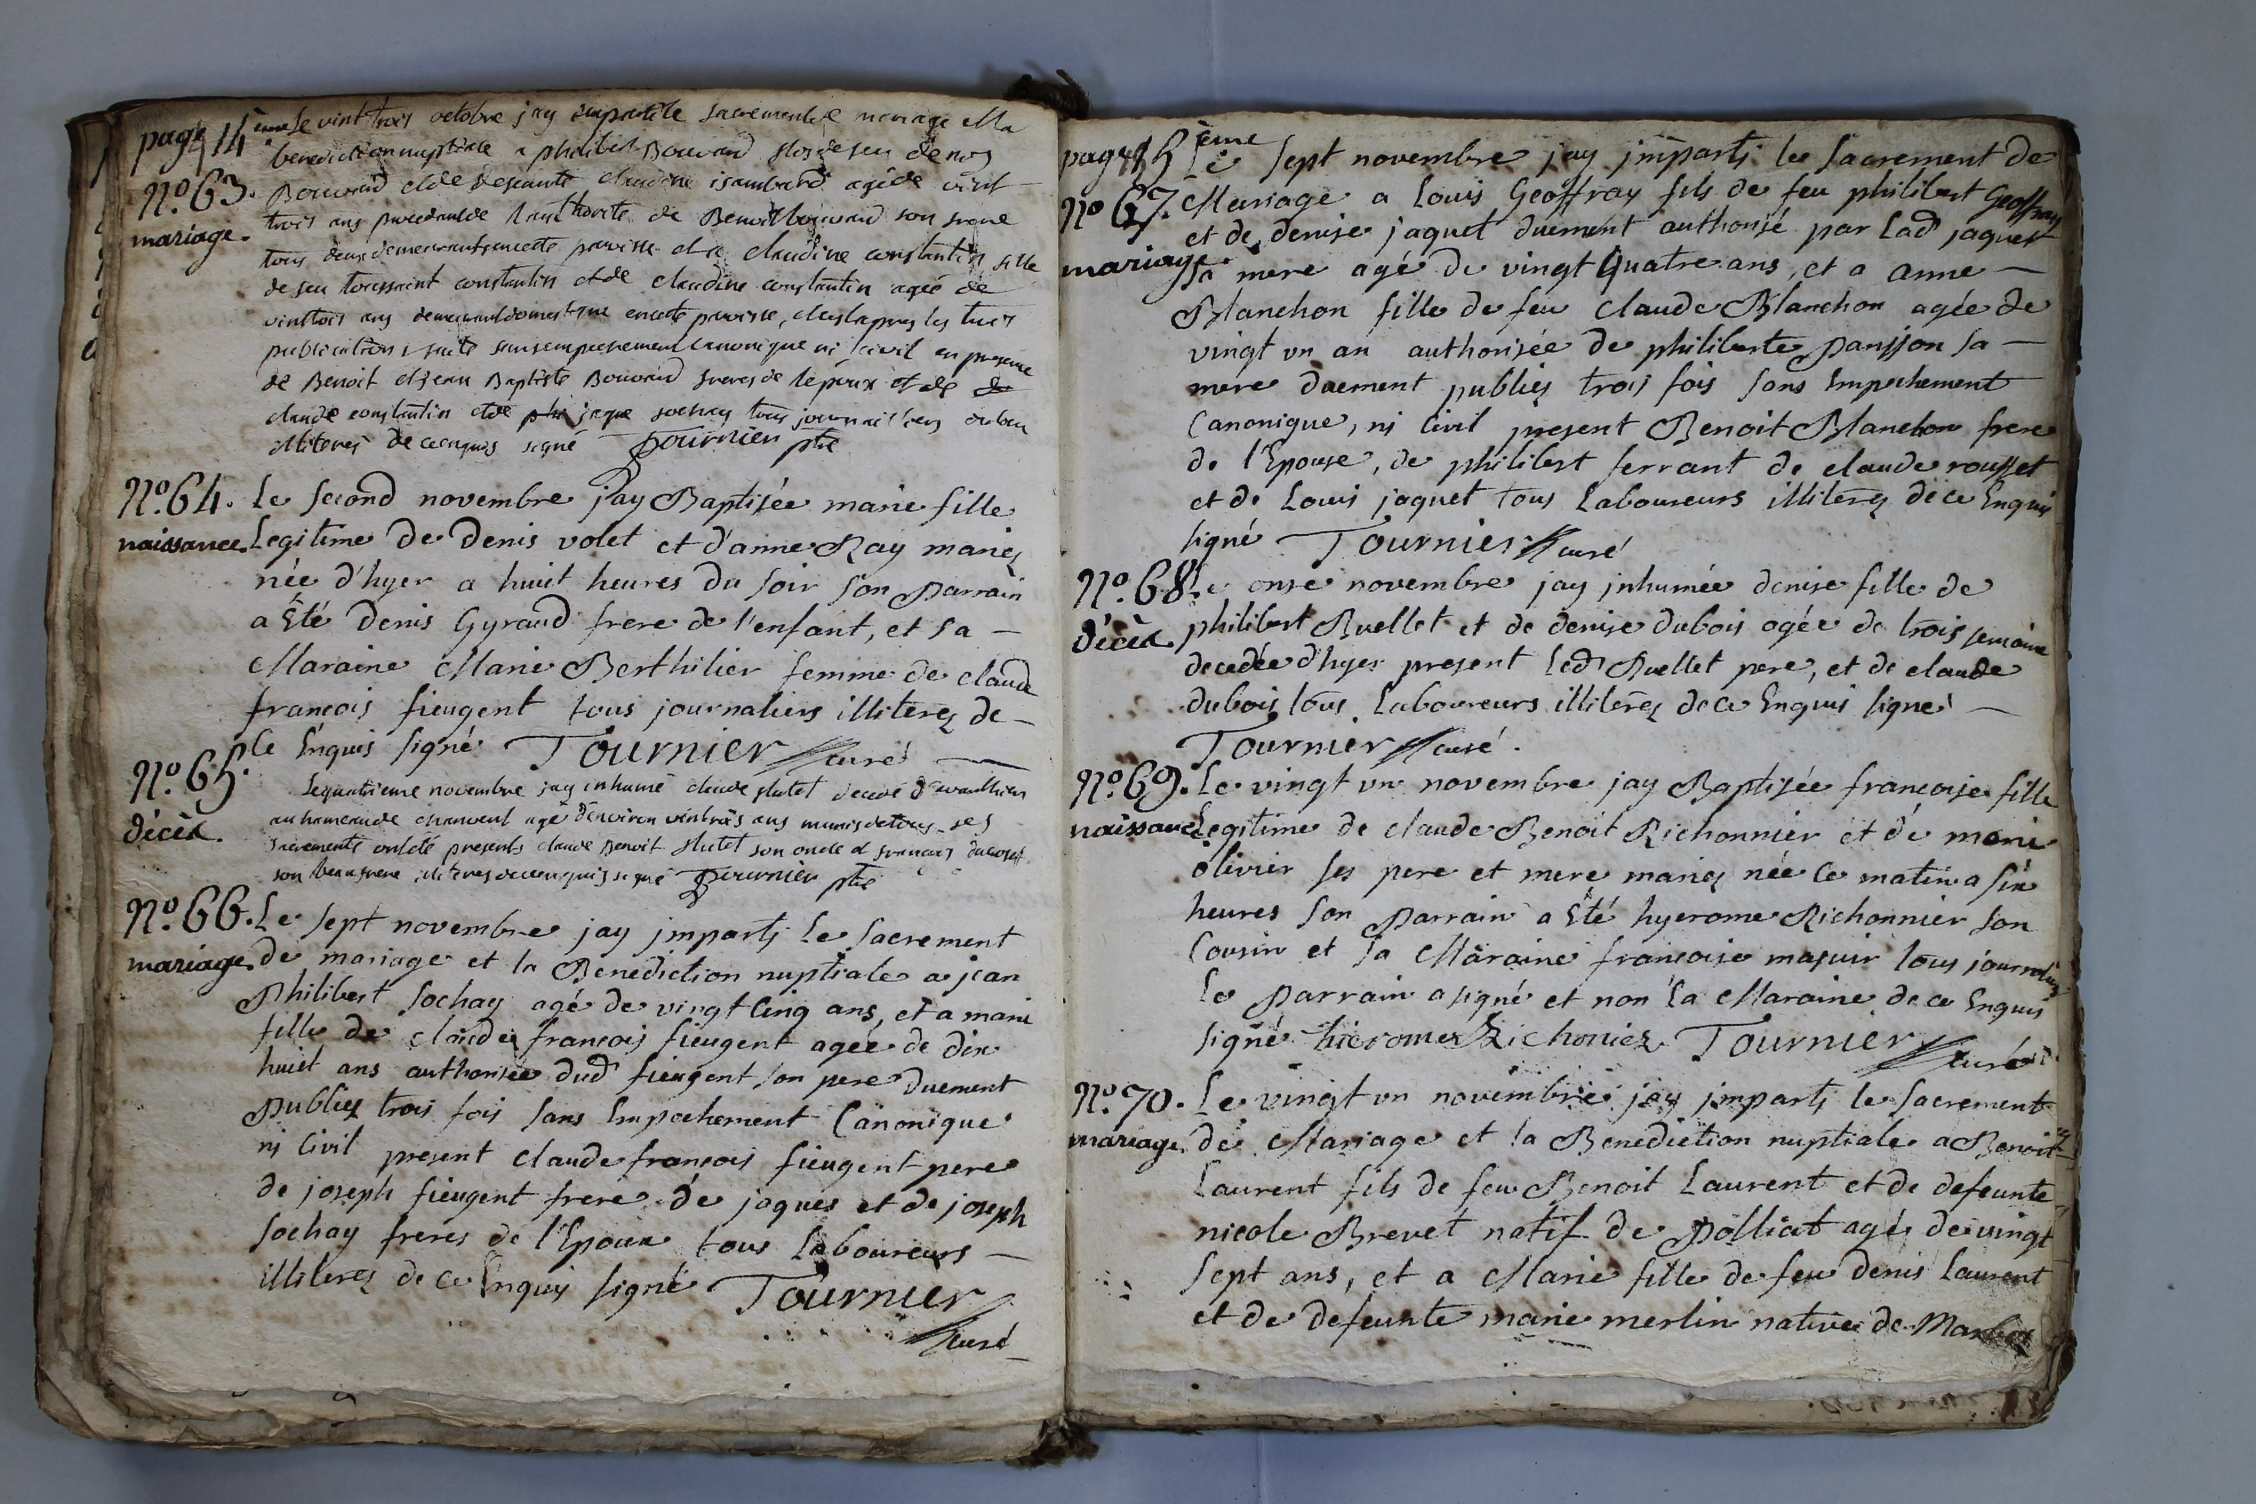 page 14 eme
No. 63.
mariage.
le vint trois octobre jay imparti le sacrement de mariage et la
benediction nuptiale a philibert Bouvard fils de feu denis
Bouvard et de defeunte claudine isambard agé de vint
trois ans procedant de l'authorité de Benoit bouvard son frere
tous deux demeurants en cette paroisse et a claudine constantin fille
de feu toussaint constantin et de claudine constantin agée de
vint trois ans demeurant domestique en cette paroisse, et ce apres les trois
publications faite sans empechement canonique ni civil en presence
de Benoit et jean Baptiste Bouvard freres de lepoux et de
claude constantin et de jaque sochay tous journailliers
illiteres de ce enquis signé Tournier ptre
No. 64.
naissance.
Le second novembre jay Baptisée marie fille
Legitime de Denis volet et d'anne Ray mariez
née d'hyer a huit heures du soir son Parrain
a Eté Denis Gyraud frere de l'enfant, et sa -
Maraine Marie Berthilier femme de claude
francois fieugent tous journaliers illiterez de -
Ce Enquis signé Tournier curé
No. 65.
décèd.
Le quatrieme novembre jay inhumé claude flutet decedé d'avanthier
au hameau de chanvent agé denviron vint trois ans munis de tous ses
sacrements ont été presents claude Benoit flutet son oncle et francois
son beau frere illiteres de ce enquis signé Tournier ptre
No. 66.
mariage.
Le sept novembre jay jmparti Le sacrement
de mariage et la Benediction nuptiale a jean
Philibert sochay agé de vingt Cinq ans, et a marie
fille de claude francois fieugent agée de dix
huit ans authorisée dud fieugent son pere duement
Publiez trois fois sans Empechement Canonique
nj Civil present claude francois fieugent pere
de joseph fieugent frere de jaques et de joseph
sochay freres de l'Epoux tous Laboureurs -
illiterez de ce Enquis signé Tournier
curé
page 15 eme
No 67.
mariage
Le sept novembre jay jmparti le Sacrement de
Mariage a Louis Geoffray fils de feu philibert Geoffray
et de denise jaquet duement authorisé par Lad jaquet
sa mere agé de vingt Quatre ans, et a anne -
Blanchon fille de feu claude Blanchon agée de
vingt un an authorisée de philiberte Panjson sa -
mere duement publiez trois fois sans Empechement
Canonique, nj Civil present Benoit Blanchon frere
de l'Epouse, de philibert ferrant de claude rousset
et de Louis jaquet tous Laboureurs illiterez de ce Enquis
signé Tournier curé
No. 68.
décèd.
Le onze novembre jay jnhumée denise fille de
philibert Buellet et de denise dubois agée de trois semaine
decedée d'hyer present Led Buellet pere, et de claude
dubois tous Laboureurs illiterez de ce Enquis signé -
Tournier curé.
No. 69.
naissance
Le vingt un novembre jay Baptisée francoise fille
Legitime de claude Benoit Richonnier et de marie
olivier ses pere et mere mariez née ce matin a six
heures son Parrain a Eté hyerome Richonnier son
Cousin et sa Maraine francoise masuir tous journaliers
Le Parrain a signé et non la Maraine de ce Enquis
signé hierome Richoniez Tournier curé
No. 70.
mariage.
Le vingt un novembre jay jmparti le Sacrement
de Mariage et la Benediction nuptiale a Benoit
Laurent fils de feu Benoit Laurent et de defeunte
nicole Brevet natif de Polliat agé de vingt
sept ans, et a Marie fille de feu denis Laurent
et de defeunte marie merlin native de Marboz